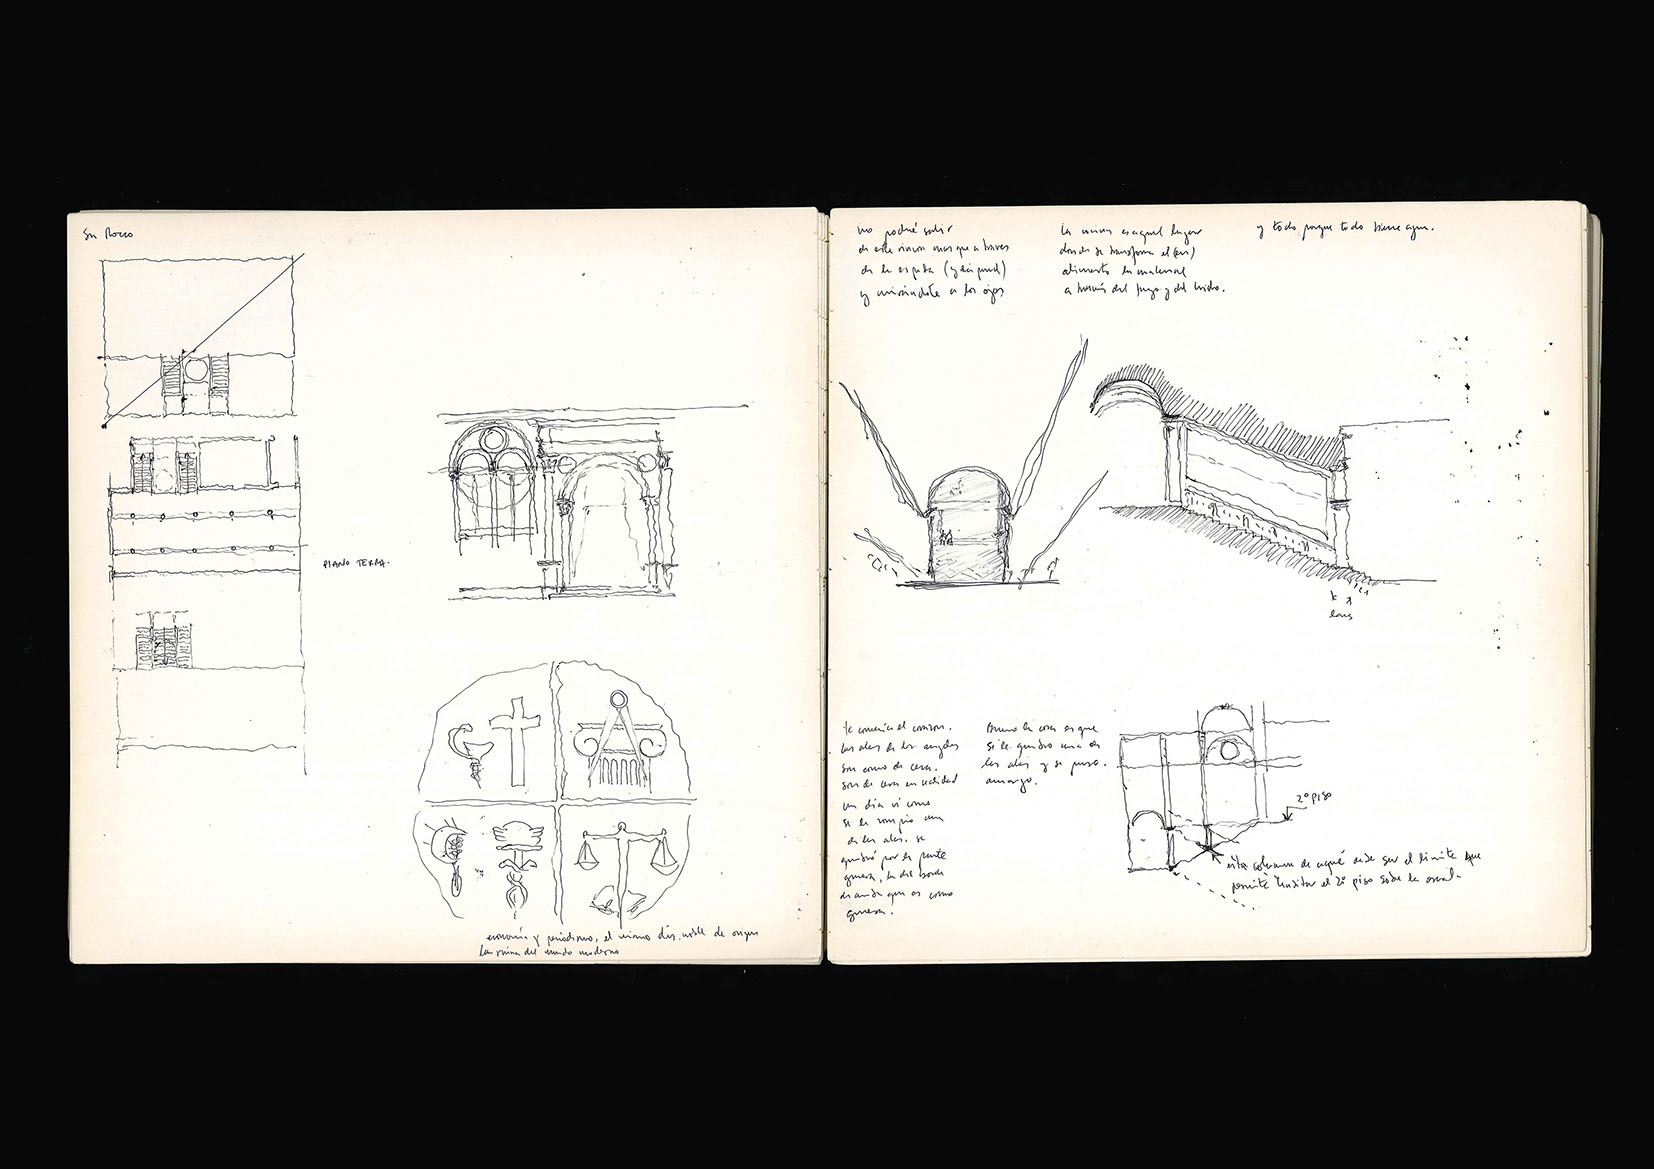 San Rocco
PIANO TERRA.
economía y periodismo, el mismo de origen
las ruinas del mundo moderno
no podré salir
de este rincon mas que a traves
de la espada (y la pared)
y mirándote a los ojos
es aquel lugar
donde se transforma el
alimento en material
a través del fuego y del vidrio.
y todo porque todo tiene agua.
te comería el corazon.
las alas de los angeles
son como de cera.
son de cera en realidad
un dia vi como
se le rompio una
de las alas. se
quebró por la parte
gruesa, la del borde
que es como
gruesa.
Bueno la cosa es que
se le quebro una de
las alas y se puso
amargo.
2º piso
esta columna de aqui debe ser el limite que
permite el 2º piso sobre la